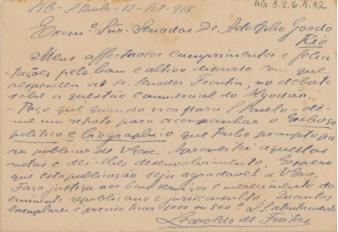 AG 3.2.6.7.12
S. Paulo - 12 - Set. 918
Exmo. Snr. Senador Dr. Adolpho Gordo
Rio
Meus affectuosos cumprimentos e felici-
tações pelo bom e altivo discurso em que
respondeu ao sr. Senador Frontin, no debate
sobre a questão commercial do Algodão.
- Peço que quando vier para S. Paulo - dê-
me um retrato para acompanhar o Esboço
politico e biographico que tenho prompto pa-
ra publicar de V. Exc. Aproveitei aquellas
notas e dei-lhes desenvolvimento. Espero
que esta publicação seja agradavel a V. Exc.
Faço justiça aos bons serviços e merecimento do
eminente republicano e jurisconsulto. Quantos
exemplares é preciso tirar 1000 ou 500?
Leopoldo de Freitas